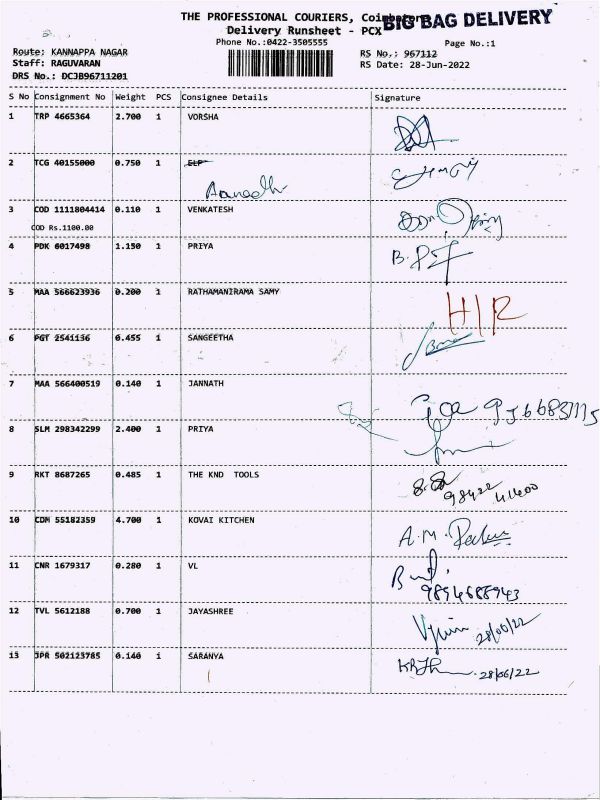 THE PROFESSIONAL COURIERS, Coimbatore
BIG BAG DELIVERY
Delivery Runsheet - PCX
Phone No.:0422-3505555
Page No.:1
Route: KANNAPPA NAGAR
RS No.: 967112
Staff: RAGUVARAN
RS Date: 28-Jun-2022
DRS No.: DCJB96711201
S No Consignment No Weight PCS Consignee Details Signature
1 TRP 4665364 2.700 1 VORSHA
2 TCG 40155000 0.750 1 ELP
3 COD 1111804414 0.110 1 VENKATESH
COD Rs.1100.00
4 PDK 6017498 1.150 1 PRIYA
5 MAA 566623936 0.200 1 RATHAMANIRAMA SAMY H/R
6 PGT 2541136 0.455 1 SANGEETHA
7 MAA 566400519 0.140 1 JANNATH
8 SLM 298342299 2.400 1 PRIYA
9 RKT 8687265 0.485 1 THE KND TOOLS
98422 41400
10 CDM 55182359 4.700 1 KOVAI KITCHEN A.M.
11 CNR 1679317 0.280 1 VL
9894688943
12 TVL 5612188 0.700 1 JAYASHREE 28/06/22
13 JPR 502123785 0.140 1 SARANYA 28/06/22